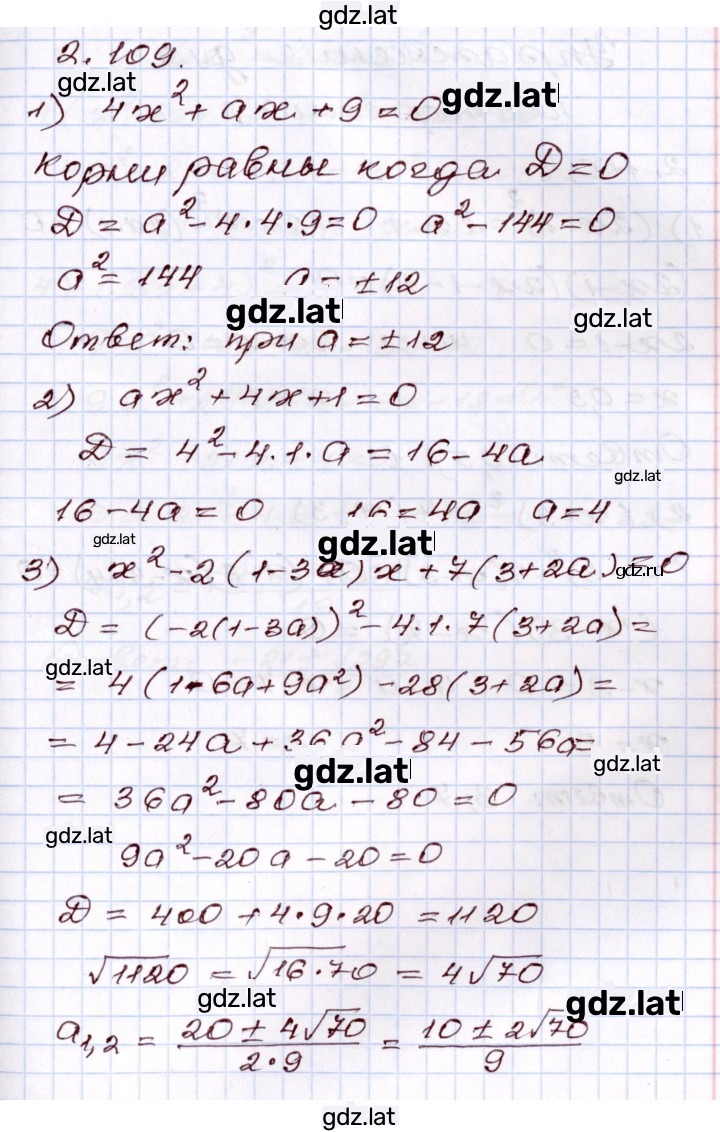 gdz.lat
2.109.
gdz.lat
1) 4x² + ax + 9 = 0 gdz.lat
корни равны когда D = 0
D = a² - 4·4·9 = 0 a² - 144 = 0
a² = 144 a = ±12
gdz.lat gdz.lat
Ответ: при a = ±12
2) ax² + 4x + 1 = 0
D = 4² - 4·1·a = 16 - 4a
gdz.lat
16 - 4a = 0 16 = 4a a = 4
gdz.lat gdz.lat
3) x² - 2(1-3a)x + 7(3+2a) = 0 gdz.ru
D = (-2(1-3a))² - 4·1·7(3+2a) =
gdz.lat
= 4(1-6a+9a²) - 28(3+2a) =
= 4 - 24a + 36a² - 84 - 56a =
gdz.lat gdz.lat
= 36a² - 80a - 80 = 0
gdz.lat
9a² - 20a - 20 = 0
D = 400 + 4·9·20 = 1120
√1120 = √16·70 = 4√70
gdz.lat gdz.lat
a₁,₂ = (20 ± 4√70)/(2·9) = (10 ± 2√70)/9
gdz.lat